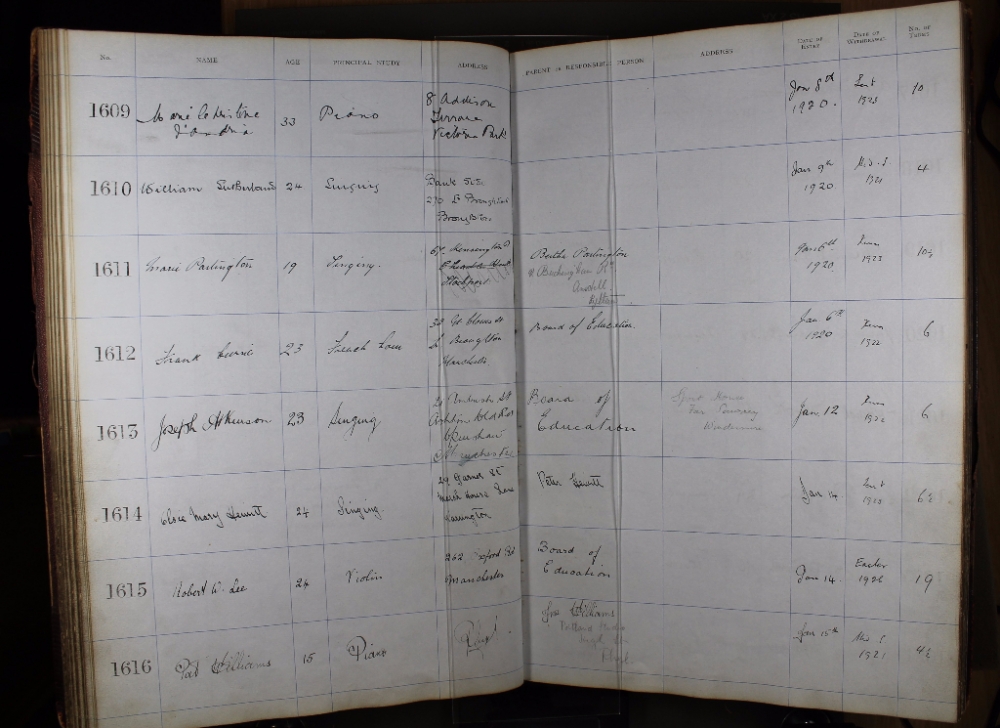 No. NAME AGE PRINCIPAL STUDY ADDRESS PARENT or RESPONSIBLE PERSON ADDRESS DATE OF ENTRY DATE OF WITHDRAWAL No. OF TERMS
1609 Marie Christine 33 Piano 8 Addison Jan 8th 10
Terrace 1920. 1923
Victoria Park
1610 William Sutherland 24 Singing Bank St. Jan 9th Mids 4
Broughton 1920 1921
Broughton
1611 Marie Partington 19 Singing. 67 Kensington Bertha Partington Jan 6th 10½
Stockport 1920. 1923
Ansdell
Lytham
1612 Frank 23 French Horn 30 Gt Clowes St Board of Education. Jan 6th 6
Broughton 1920 1922
Manchester
1613 Joseph Atkinson 23 Singing Board of Jan 12 6
Ashton Old Rd Education 1922
Openshaw Windermere
Manchester
1614 Elsie Mary Hewitt 24 Singing. 29 Garner St Peter Hewitt Jan 14. 6½
Marsh House Lane 1920
Warrington
1615 Robert W. Lee 24 Violin 262 Oxford Rd Board of Jan 14. Easter 19
Manchester Education 1926
1616 Pat Williams 15 Piano Rhyl. Williams Jan 15th 4½
1921
Rhyl